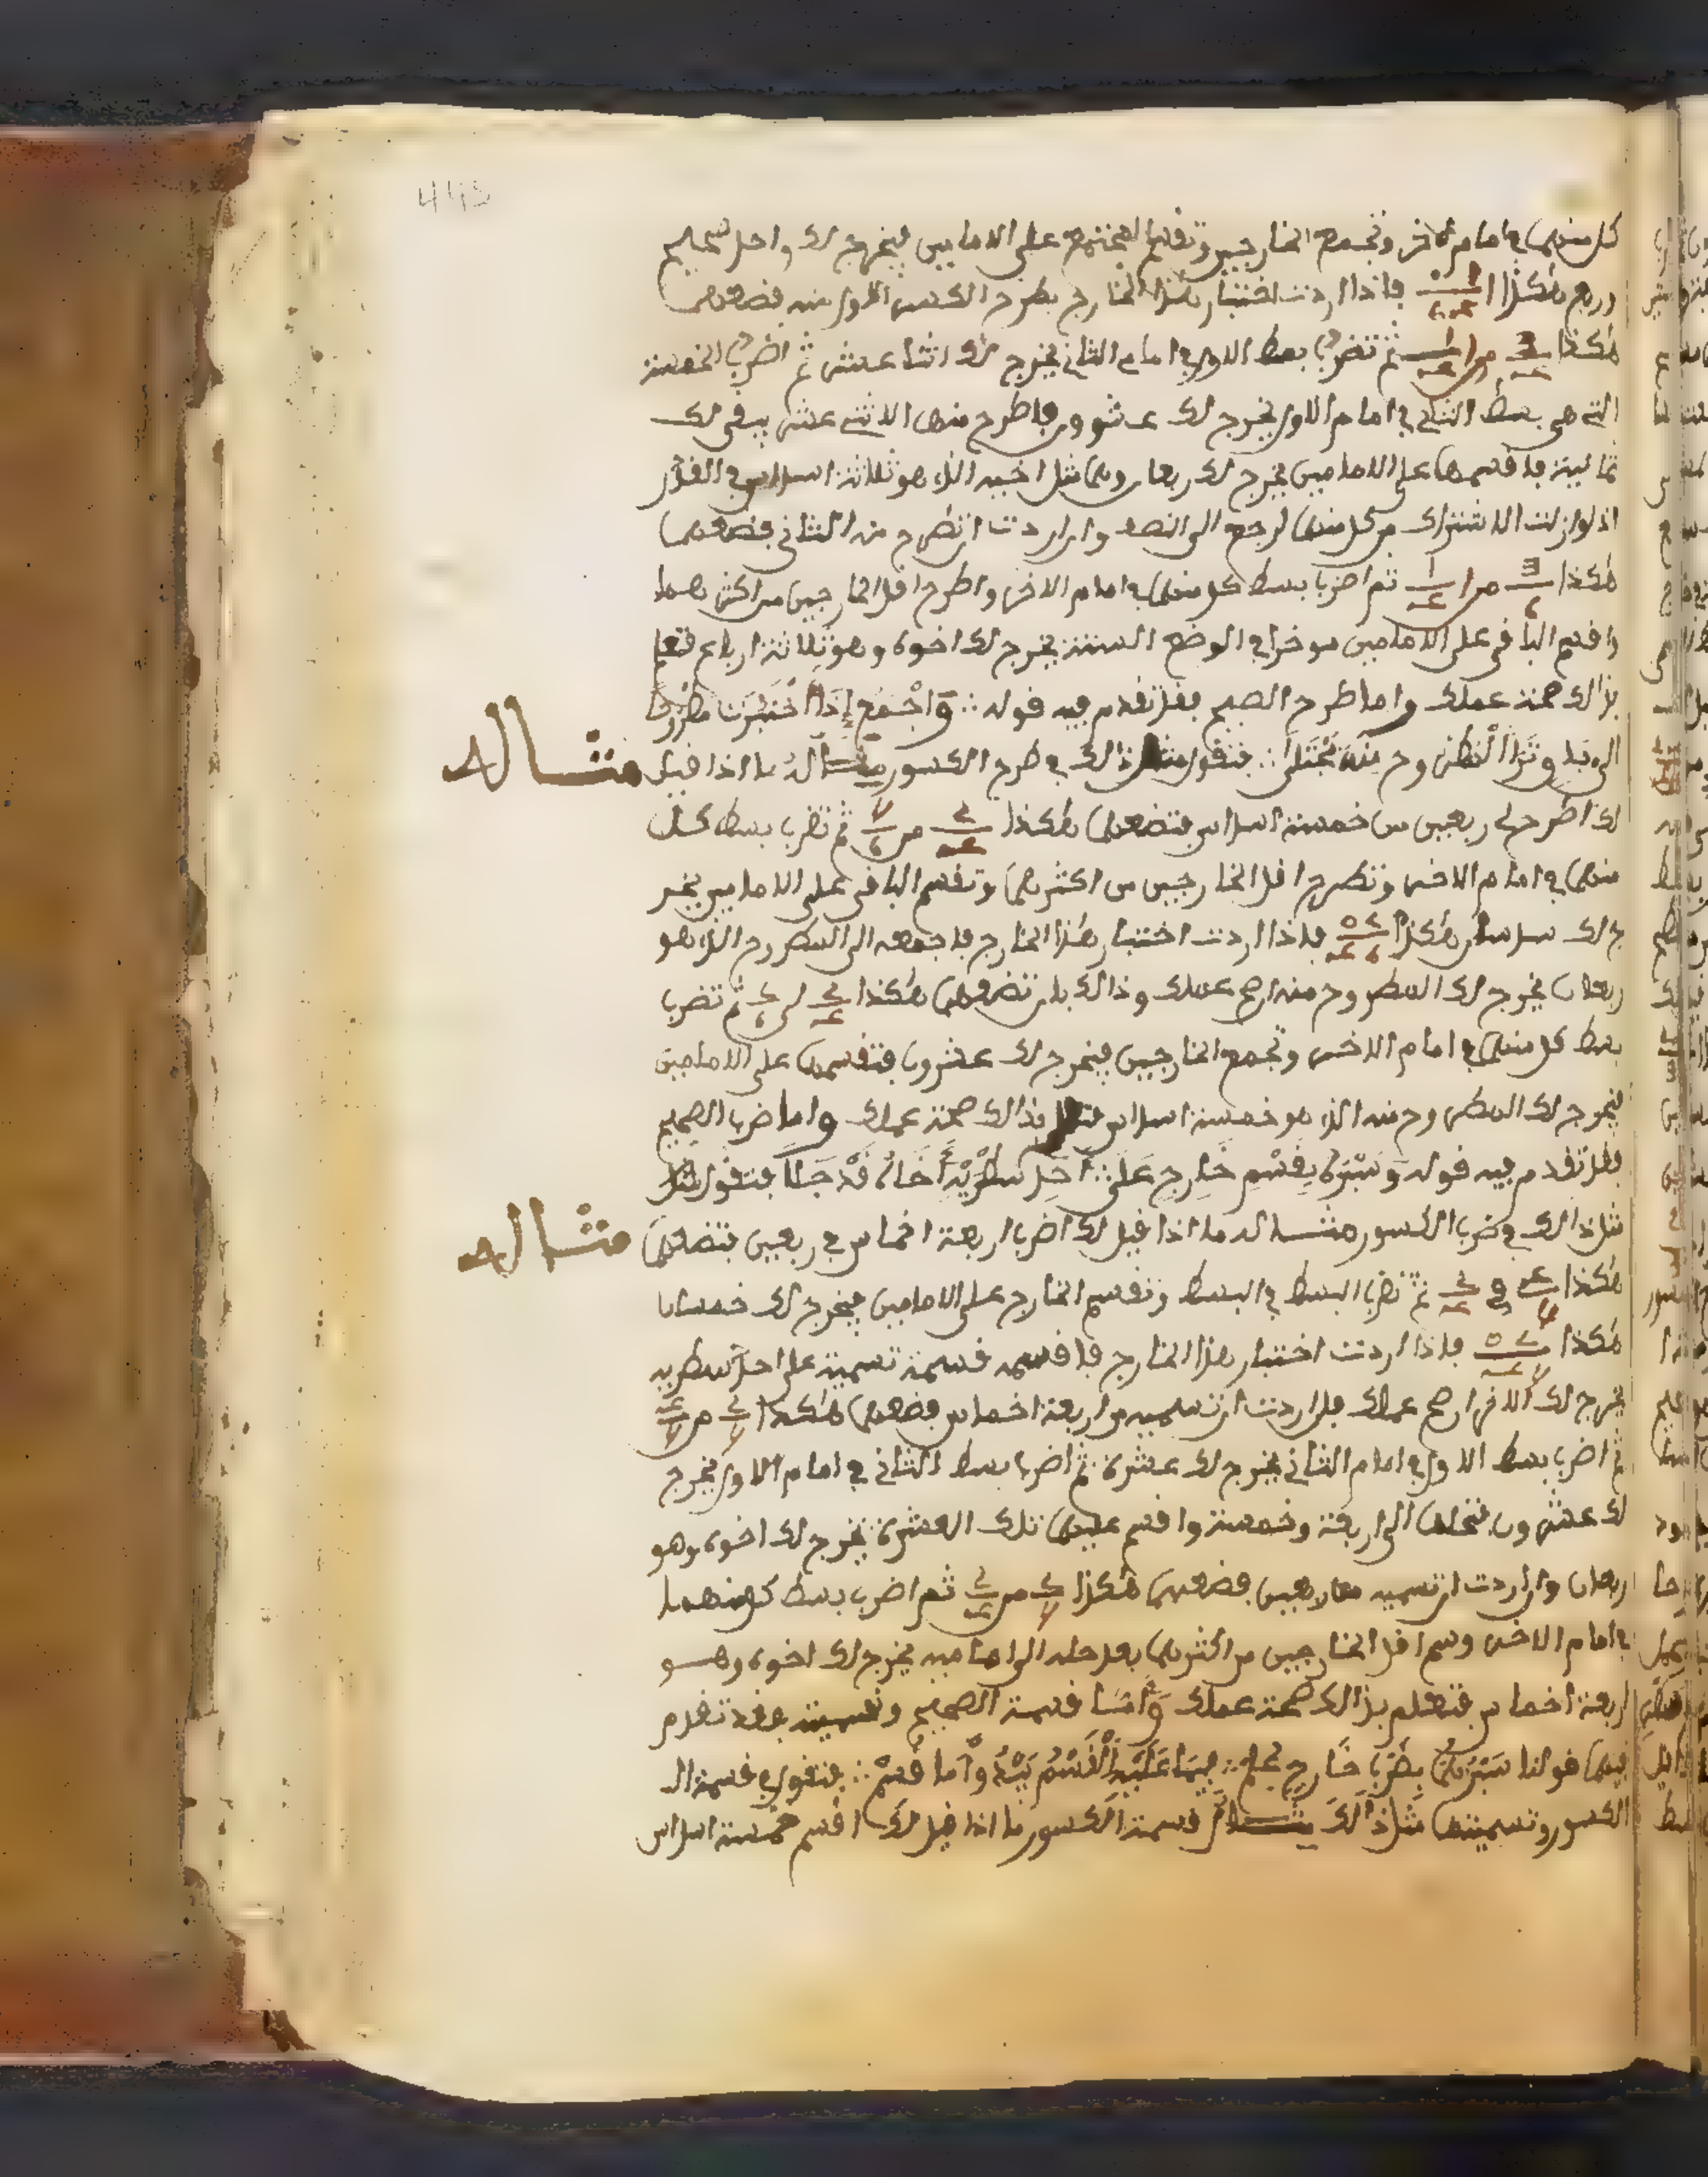 كل منهما في امام الاخر وتجمع الخارجين وتقسم المجتمع على الامامين فيخرج لك واحد صحيح
وربع هكذا فاذا اردت اختبار هذا الخارج بطرح الكسر الاول منه فضعهما
هكذا من ثم تضرب بسط الاول في امام الثاني يخرج لك اثنا عشر ثم اضرب الخمسة
التي هي بسط الثاني في امام الاول يخرج لك عشرون فاطرح منها الاثني عشر يبقى لك
ثمانية فاقسمها على الامامين يخرج لك ربعان وهما مثل اخيه الذي هو ثلاثة اسداس في القدر
اذ لو ازلت الاشتراك من كل منهما لرجع الى النصف وان اردت ان تطرح منه الثاني فضعهما
هكذا من ثم اضرب بسط كل منهما في امام الاخر واطرح اقل الخارجين من اكثرهما
واقسم الباقي على الامامين موخرا في الوضع الستة يخرج لك اخوه وهو ثلاثة ارباع فتعلم
بذالك صحة عملك واما طرح الصحيح فقد تقدم فيه قوله ∴ وَاجْمَعْ إِذَا اخْتَبَرْتَ مطروحا
الى بد وترا المطروح منه يجتلى ∴ فتقول مثل ذالك في طرح الكسور مثاله ما اذا قيل مثاله
لك اطرح لي ربعين من خمسة اسداس فتضعهما هكذا من ثم تضرب بسط كل
منهما في امام الاخر وتطرح اقل الخارجين من اكثرهما وتقسم الباقي على الامامين يخر
ج لك سدسان هكذا فاذا اردت اختبار هذا الخارج فاجمعه الى المطروح الذي هو
ربعان يخرج لك المطروح منه ان صح عملك وذالك بان تضعهما هكذا الى ثم تضرب
بسط كل منهما في امام الاخر وتجمع الخارجين فيخرج لك عشرون فتقسمها على الامامين
فيخرج لك المطروح منه الذي هو خمسة اسداس فتعلم بذالك صحة عملك واما ضرب الصحيح
فقد تقدم فيه قوله وَسَبْرُهُ بِقَسْمِ خَارِجٍ عَلَى ∴ أَحَدِ سَطْرَيْهِ أَخَاهُ قَدْ جَلَا فتقول
مثل ذالك في ضرب الكسور مثاله ما اذا قيل لك اضرب اربعة اخماس في ربعين فتضعهما مثاله
هكذا في ثم تضرب البسط في البسط وتقسم الخارج على الامامين فيخرج لك خمسان
هكذا فاذا اردت اختبار هذا الخارج فاقسمه قسمة تسمية على احد سطريه
يخرج لك الاخر ان صح عملك فان اردت ان تسميه من اربعة اخماس فضعهما هكذا من
ثم اضرب بسط الاول في امام الثاني يخرج لك عشرة ثم اضرب بسط الثاني في امام الاول يخرج
لك عشرون فتحلها الى اربعة وخمسة واقسم عليهما تلك العشرة يخرج لك اخوه وهو
ربعان وان اردت ان تسميه من ربعين فضعهما هكذا من ثم اضرب بسط كل منهما
في امام الاخر وسم اقل الخارجين من اكثرهما بعد حله الى اماميه يخرج لك اخوه وهو
اربعة اخماس فتعلم بذالك صحة عملك واما قسمة الصحيح وتسميته فقد تقدم
فيهما قولنا سَبْرُهُمَا بِضَرْبِ خَارِجٍ عُلِمَ ∴ فِيمَا عَلَيْهِ الْقَسْمُ يَبْدُو مَا قُسِمْ ∴ فتقول في قسمة ال
الكسور وتسميتها مثل ذالك مثال قسمة الكسور ما اذا قيل لك اقسم خمسة اسداس